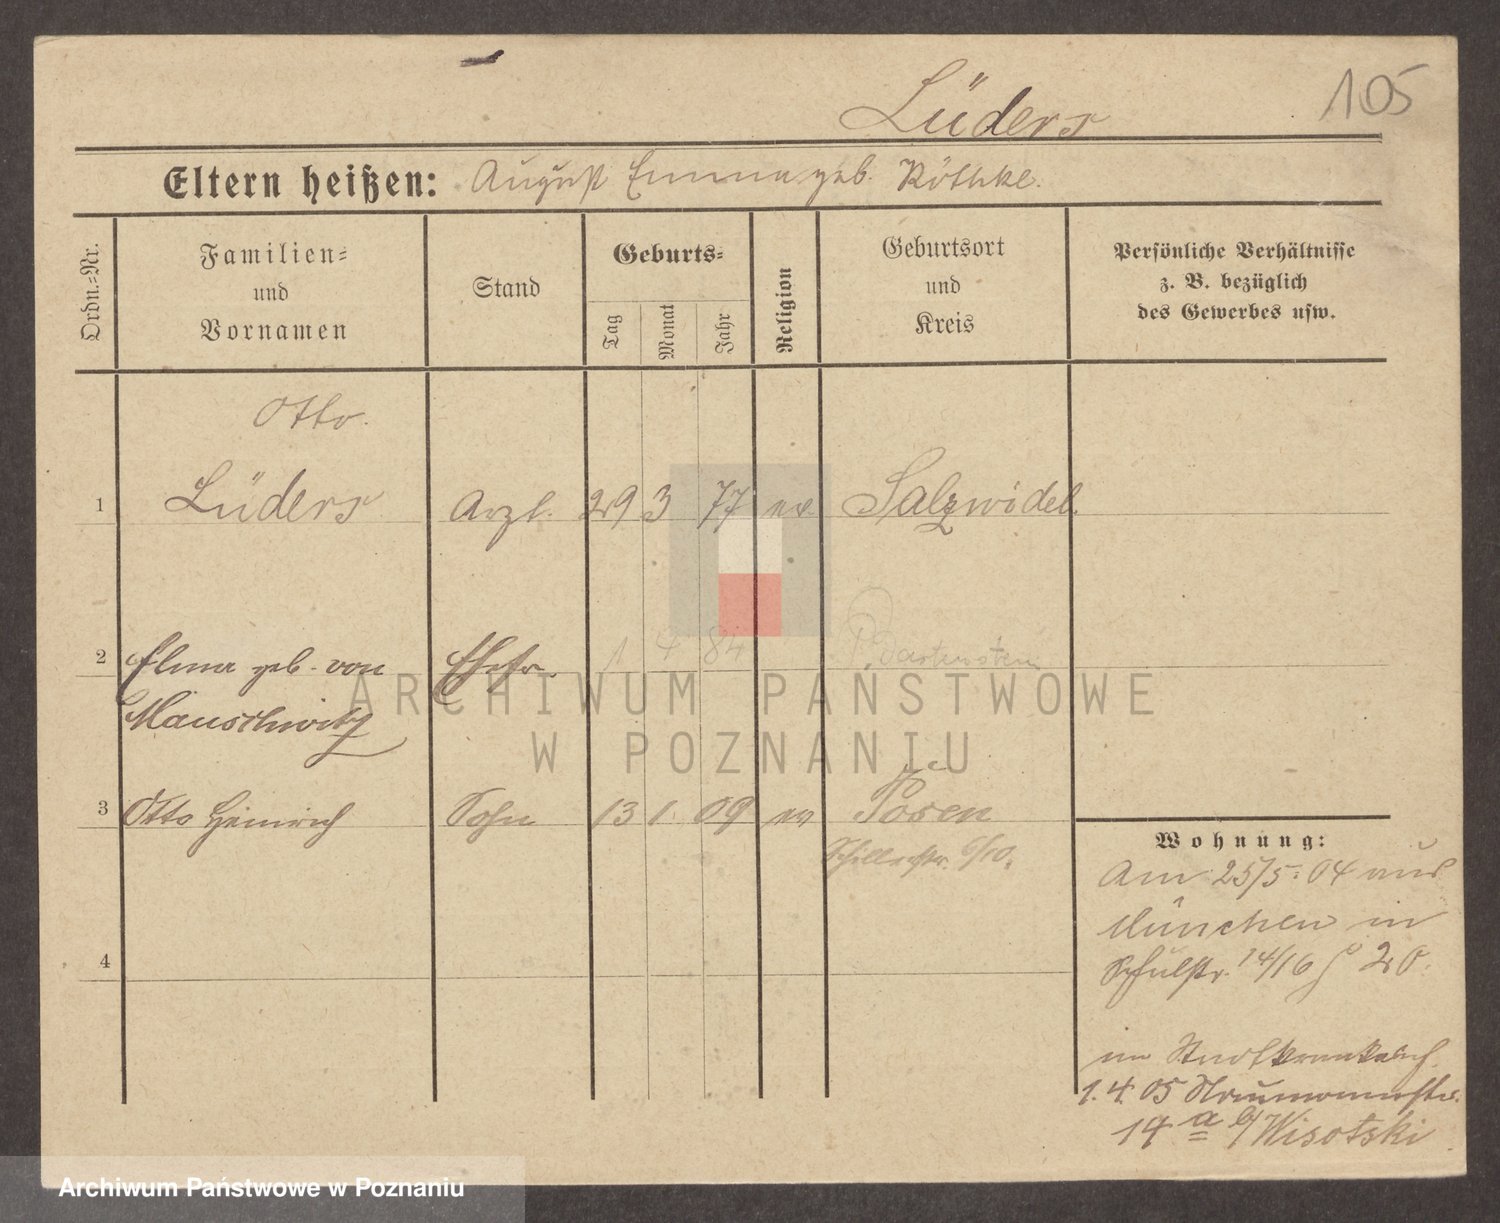 Lüders
105
Eltern heißen: August Emma geb. Röthke.
Ordn.-Nr.
Familien- und Vornamen
Stand
Geburts-
Tag
Monat
Jahr
Religion
Geburtsort und Kreis
Persönliche Verhältnisse
z. B. bezüglich
des Gewerbes usw.
Otto.
1 Lüders Arzt. 29 3 77 ev. Salzwedel.
2 Elma geb. von Ehefr. 1 4 84
Mauschwitz
3 Otto Heinrich Sohn 13 1. 09 ev Posen
Schillerstr. 6/10.
4
Wohnung:
Am 25/5. 04 aus
München in
Schulstr. 14/16 20.
im Stadtkrankenh.
1. 4. 05 Naumannstr.
14 a b/ Wisotski
ARCHIWUM PAŃSTWOWE
W POZNANIU
Archiwum Państwowe w Poznaniu